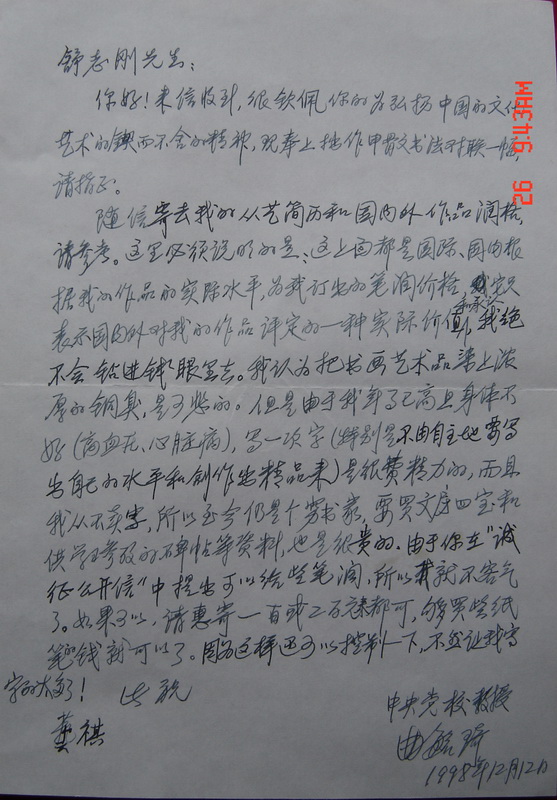 舒志刚先生：
你好！来信收到，很钦佩你的为弘扬中国的文化
艺术的锲而不舍的精神，现奉上拙作甲骨文书法对联一幅，
请指正。
随信寄去我的从艺简历和国内外作品润格，
请参考。这里必须说明的是：这上面都是国际、国内根
据我的作品的实际水平，为我订出的笔润价格，只
表示国内外对我的作品评定的一种实际价值和承认，我绝
不会钻进钱眼里去。我认为把书画艺术品染上浓
厚的铜臭，是可悲的。但是由于我年事已高且身体不
好（高血压、心脏病），写一次字（特别是不由自主地要写
出自己的水平和创作出精品来）是很费精力的，而且
我从不卖字，所以至今仍是个穷书家，要买文房四宝和
供学习参考的碑帖等资料，也是很贵的。由于你在“诚
征公开信”中提出可以给些笔润，所以我就不客气
了。如果可以，请惠寄一百或二百元都可，够买些纸
笔的钱就可以了。因为这样还可以控制一下，不然让我写
字的太多了！ 此祝
冀祺
中央党校教授
曲毓琦
1998年12月12日
26 9:43AM